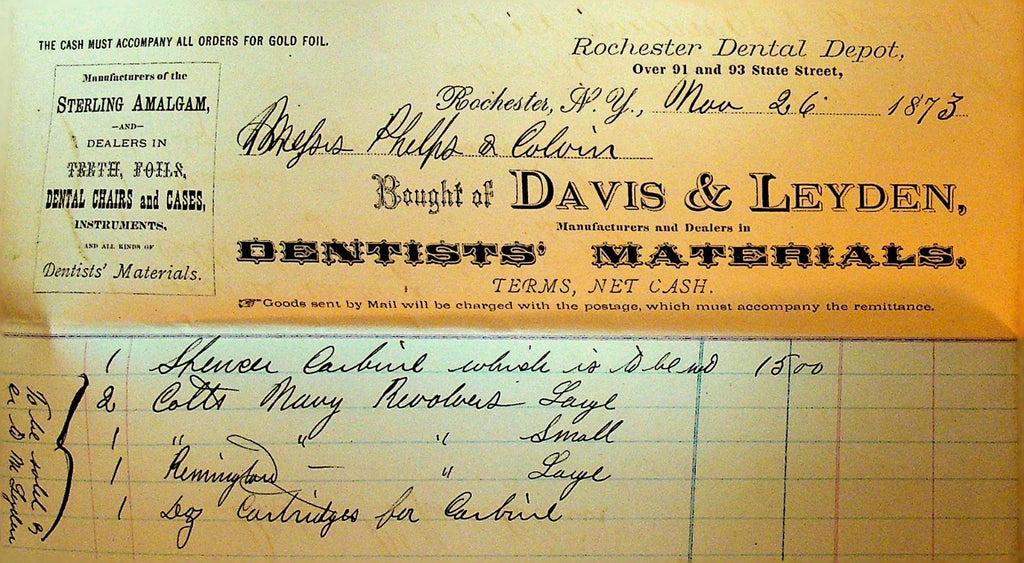 THE CASH MUST ACCOMPANY ALL ORDERS FOR GOLD FOIL.
Manufacturers of the
STERLING AMALGAM,
—AND—
DEALERS IN
TEETH, FOILS,
DENTAL CHAIRS and CASES,
INSTRUMENTS,
AND ALL KINDS OF
Dentists' Materials.
Rochester Dental Depot,
Over 91 and 93 State Street,
Rochester, N. Y., Nov 26 1873
Messrs Phelps & Colvin
Bought of DAVIS & LEYDEN,
Manufacturers and Dealers in
DENTISTS' MATERIALS.
TERMS, NET CASH.
☞Goods sent by Mail will be charged with the postage, which must accompany the remittance.
1 Spencer Carbine which is 15 00
2 Colts Navy Revolvers Large
1 " " " Small
1 Remington — " Large
1 Doz Cartridges for Carbine
To be sold
Leyden